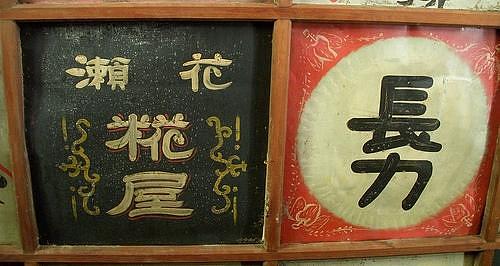 花瀬
糀屋
長力